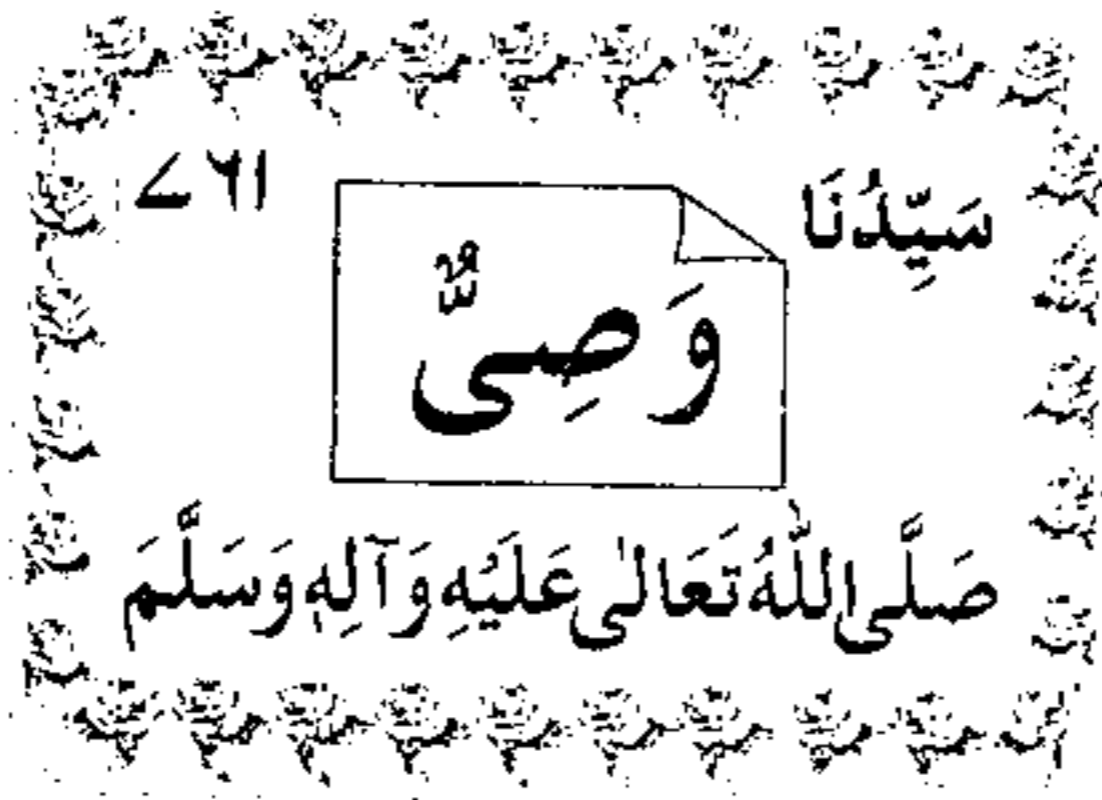 سَيِّدُنَا ۷۶۱
وَصِیٌّ
صَلَّى اللّٰهُ تَعَالىٰ عَلَيْهِ وَآلِهٖ وَسَلَّمَ